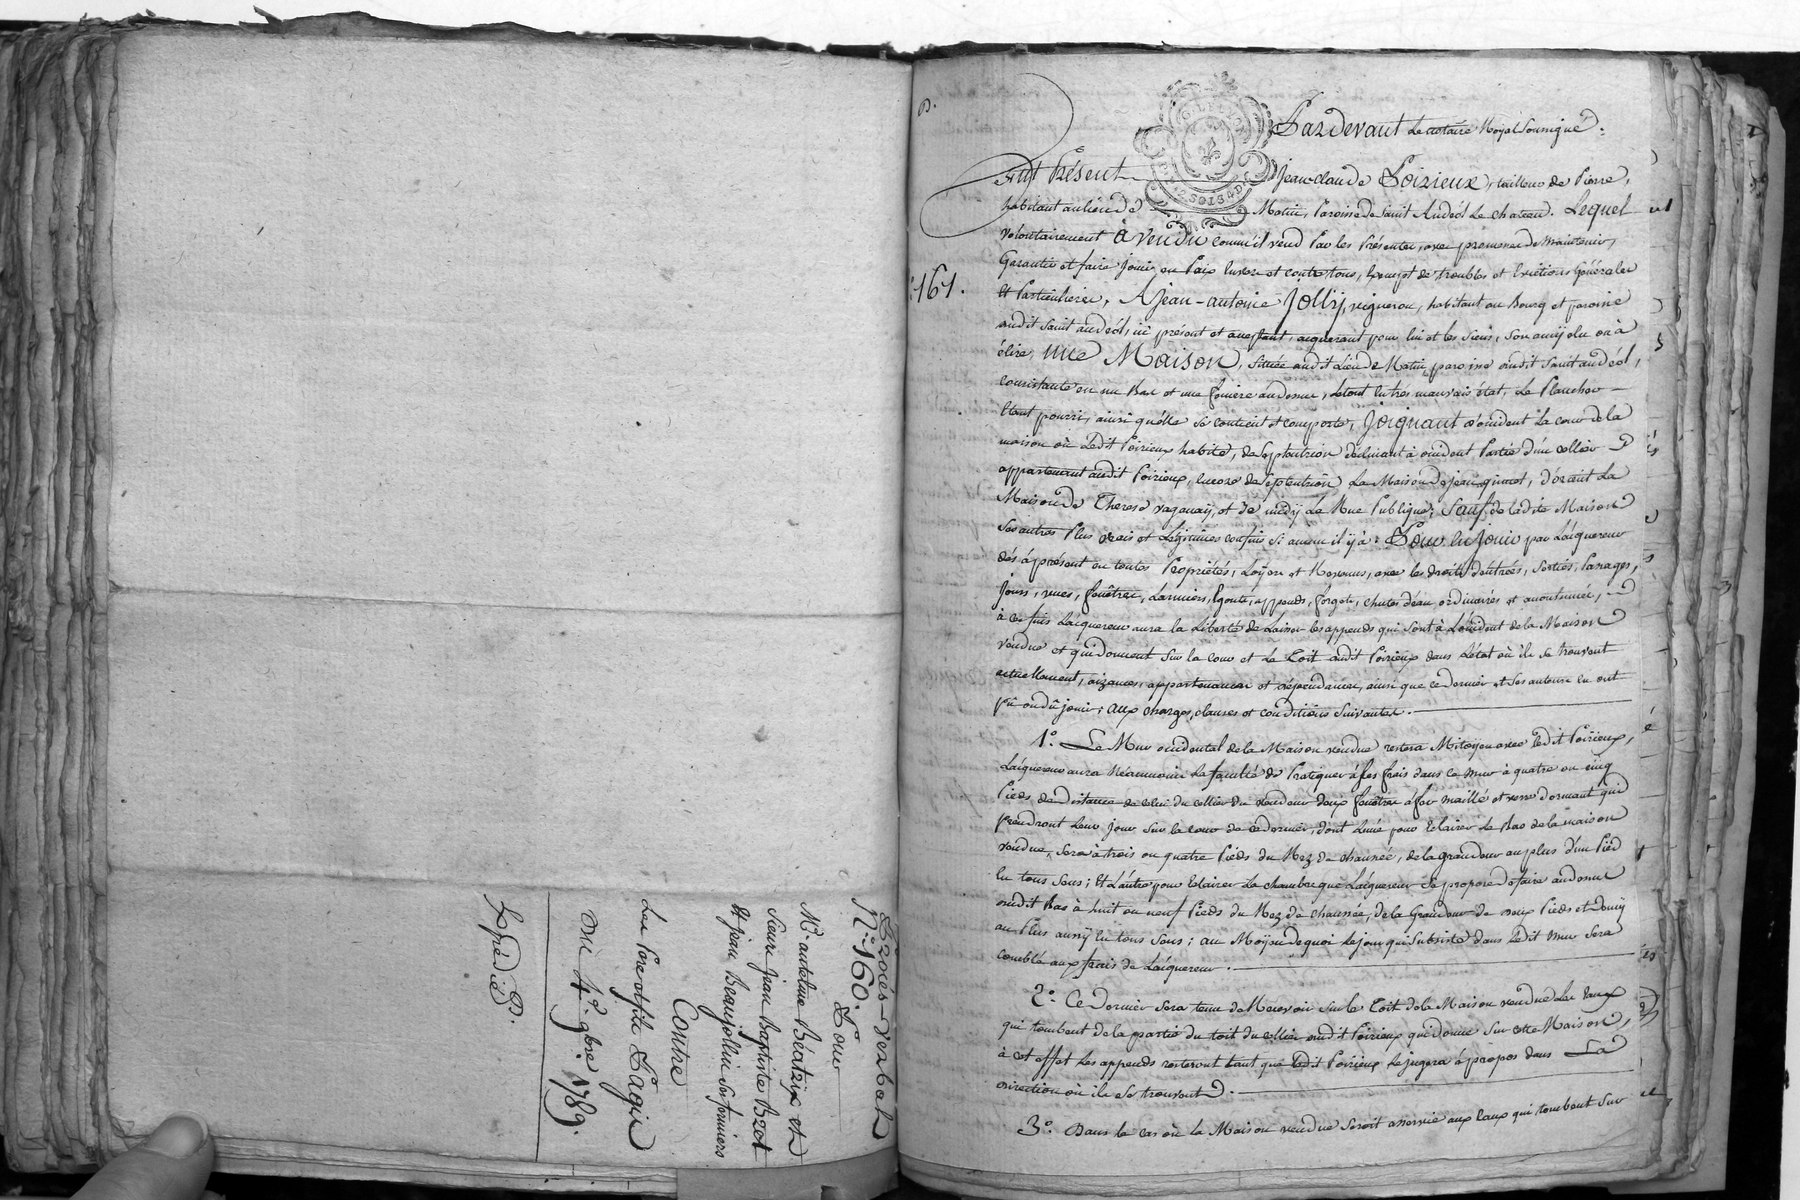 Procès-verbal
N.° 160. Pour
M.e antelme Béatrix et
Sieur jean Baptiste Bret
et jean Beaujollin ses fermiers
Contre
Les Pere et fils Pagis
Du 4.e 9bre 1789.
Expédié
Pardevant Le notaire Royal Soussigné:
Fut Présent Jean-claude Poizieux, tailleur de Pierre,
habitant au lieu de Matin, Paroisse de Saint Andéol Le chateau. Lequel
volontairement à vendu comm'il vend Par les Présentes, avec promesse de maintenir,
Garantir et faire jouir, en Paix envers et contre tous, Exempt de troubles et Evictions Générales
161.
et Particulieres, A jean-antoine jolly, vigneron, habitant au Bourg et paroisse
dudit saint andéol, ici présent et acceptant, acquerant pour lui et les siens, son amy élu ou à
élire, une Maison, située audit Lieu de Matin, paroisse dudit saint andéol,
consistante en un Bas et une feniere au dessus, le tout en très mauvais état, Le Plancher
Etant pourri, ainsi qu'elle se contient et comporte, joignant d'occident la cour de la
maison où Ledit Poirieux habite, de septentrion déclinant à occident Partie d'un cellier
appartenant audit Poirieux, encore de septentrion La Maison de jean guinot, d'orient La
Maison de Therese vaganaÿ, et de midy La Rue Publique; Sauf de ladite Maison
Ses autres Plus vrais et Légitimes confins si aucuns il y à: Pour En jouir par L'acquereur
dés à présent en toutes Propriétés, Loyers et Revenus, avec les droits d'entrées, sorties, Passages,
jours, vues, fenêtres, Larmiers, Egouts, appends, forgets, chutes d'eau ordinaires et accoutumées,
à ces fins L'acquereur aura la Liberté de Laisser les appends qui sont à L'occident de la Maison
vendue et qui donnent sur la cour et Le Toit audit Poirieux dans L'état où ils se trouvent
actuellement, aizances, appartenances et dépendances, ainsi que ce dernier et ses auteurs en ont
pû ou dû jouir; aux charges, clauses et conditions suivantes.
1.° Le Mur occidental de la Maison vendue restera Mitoyen avec Ledit Poirieux,
L'acquereur aura Néanmoins La faculté de Pratiquer à ses frais dans ce mur à quatre ou cinq
Pieds de distance de celui du cellier du vendeur deux fenêtres à fer maillé et verre dormant qui
prendront Leur jour sur la cour de ce dernier, dont L'une pour Eclairer Le Bas de la maison
vendue, sera à trois ou quatre Pieds du Rez de chaussée, de la grandeur au plus d'un Pied
En tous sens; Et L'autre pour Eclairer La chambre que L'acquereur se propose de faire au dessus
dudit Bas à huit ou neuf Pieds du Rez de chaussée, de la Grandeur de deux Pieds et demÿ
au Plus aussÿ En tous sens; au Moyen de quoi Le jour qui subsiste dans Ledit mur sera
comblé aux frais de L'acquereur.
2.° Ce Dernier sera tenu de Recevoir sur le Toit de la Maison vendue Les Eaux
qui tombent de la partie du toit du cellier dudit Poirieux qui donne sur cette Maison,
à cet effet Les appends resteront tant que Ledit Poirieux Le jugera à propos dans La
direction où ils se trouvent.
3.° Dans le cas où la Maison vendue seroit asservie aux Eaux qui tombent sur